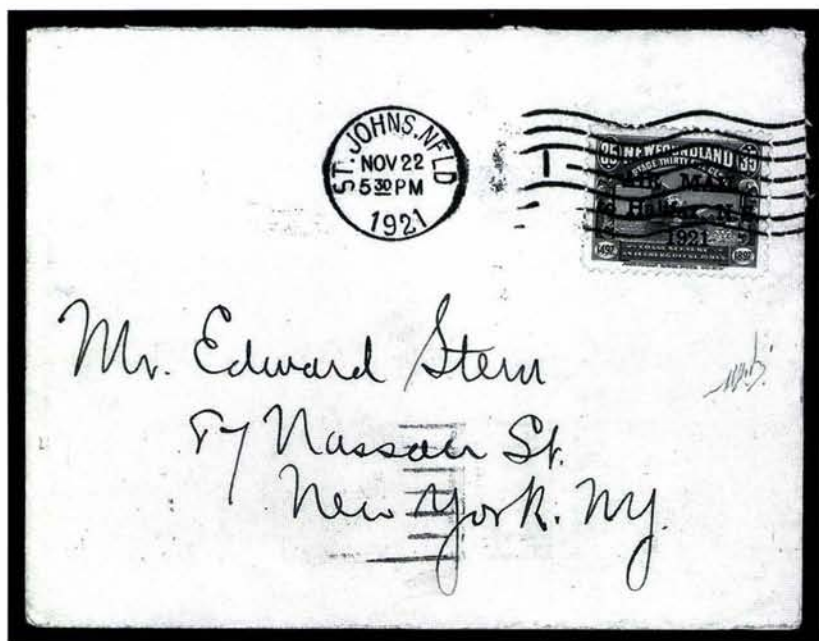 ST. JOHNS. NFLD
NOV 22
5 30 PM
1921
35 NEWFOUNDLAND 35
AIR MAIL
to Halifax, N.S.
1921
1497 1897
Mr. Edward Stern
87 Nassau St.
New York. NY.